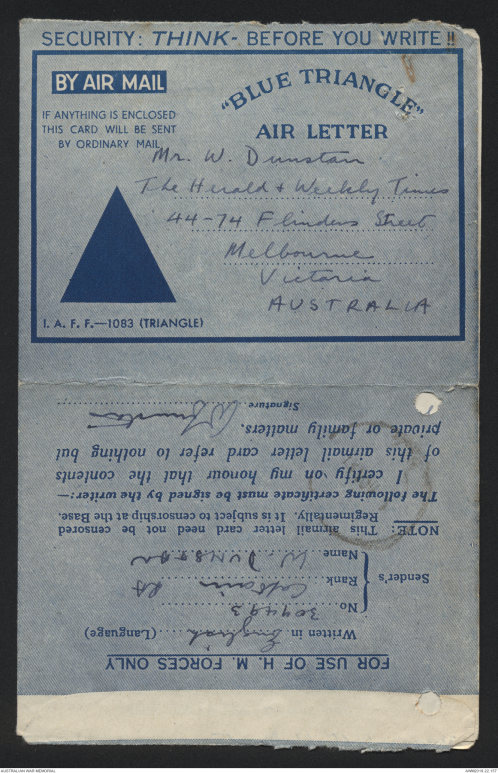 SECURITY: THINK- BEFORE YOU WRITE!!
BY AIR MAIL
IF ANYTHING IS ENCLOSED
THIS CARD WILL BE SENT
BY ORDINARY MAIL
"BLUE TRIANGLE"
AIR LETTER
Mr. W. Dunstan
The Herald & Weekly Times
44-74 Flinders Street
Melbourne
Victoria
AUSTRALIA
I. A. F. F.—1083 (TRIANGLE)
FOR USE OF H. M. FORCES ONLY
Written in English (Language)
Sender's
No. 307493
Rank Captain
Name W. DUNSTAN
NOTE: This airmail letter card need not be censored
Regimentally. It is subject to censorship at the Base.
The following certificate must be signed by the writer:—
I certify on my honour that the contents
of this airmail letter card refer to nothing but
private or family matters.
Signature. W Dunstan
AUSTRALIAN WAR MEMORIAL
AWM2018.22.157